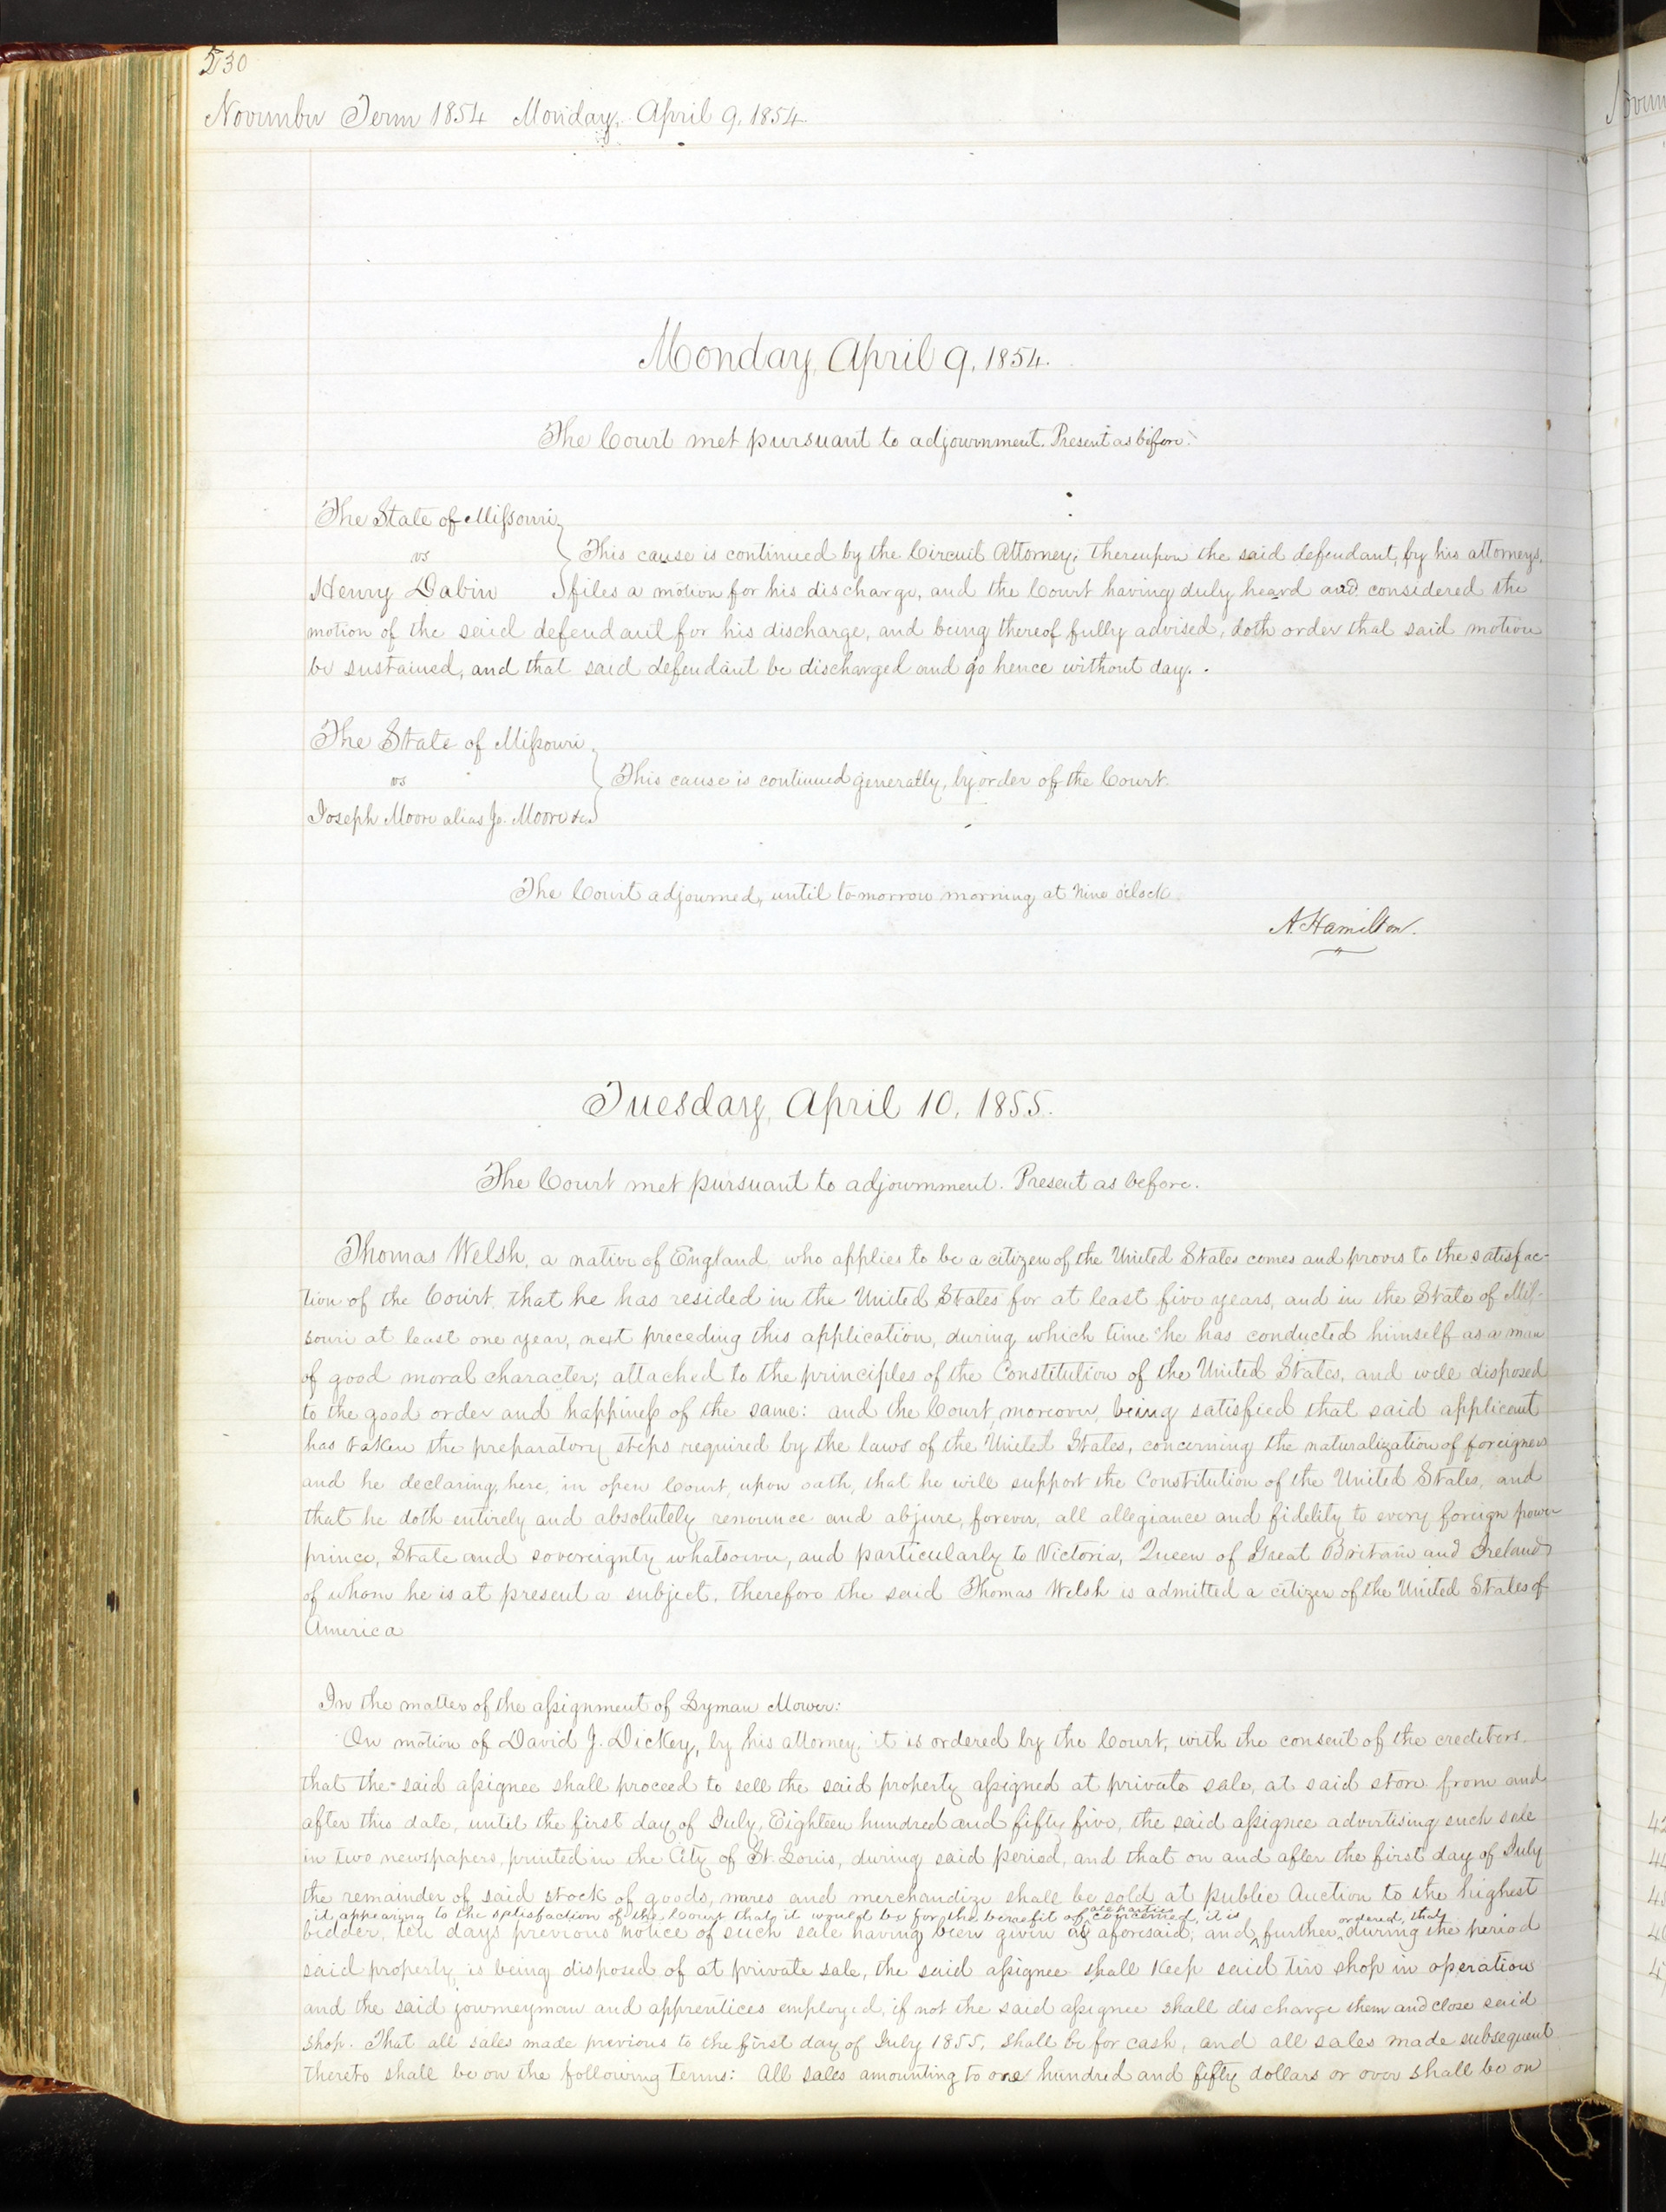 530
November Term 1854 Monday, April 9, 1854.
Monday, April 9, 1854.
The Court met pursuant to adjournment. Present as before.
The State of Missouri
vs
This cause is continued by the Circuit Attorney; thereupon the said defendant, by his attorneys,
Henry Dabin
files a motion for his discharge, and the Court having duly heard and considered the
motion of the said defendant for his discharge, and being thereof fully advised, doth order that said motion
be sustained, and that said defendant be discharged and go hence without day.
The State of Missouri
vs
This cause is continued generally, by order of the Court.
Joseph Moore alias Jo. Moore &c
The Court adjourned, until to-morrow morning at Nine o'clock.
A. Hamilton.
Tuesday, April 10, 1855.
The Court met pursuant to adjournment. Present as before.
Thomas Welsh, a native of England who applies to be a citizen of the United States comes and proves to the satisfac-
tion of the Court, that he has resided in the United States for at least five years, and in the State of Mis-
souri at least one year, next preceding this application, during which time he has conducted himself as a man
of good moral character; attached to the principles of the Constitution of the United States, and well disposed
to the good order and happiness of the same: and the Court, moreover, being satisfied that said applicant
has taken the preparatory steps required by the laws of the United States, concerning the naturalization of foreigners
and he declaring, here, in open Court, upon oath, that he will support the Constitution of the United States, and
that he doth entirely and absolutely renounce and abjure, forever, all allegiance and fidelity to every foreign power
prince, State and sovereignty whatsoever, and particularly to Victoria, Queen of Great Britain and Ireland
of whom he is at present a subject, therefore the said Thomas Welsh is admitted a citizen of the United States of
America
In the matter of the assignment of Lyman Mower:
On motion of David J. Dickey, by his attorney, it is ordered by the Court, with the consent of the creditors.
that the said assignee shall proceed to sell the said property assigned at private sale, at said store from and
after this date, until the first day of July, Eighteen hundred and fifty five, the said assignee advertising such sale
in two newspapers, printed in the City of St. Louis, during said period, and that on and after the first day of July
the remainder of said stock of goods, wares and merchandize shall be sold at public Auction to the highest
it appearing to the satisfaction of the Court that it would be for the benefit of all parties concerned, it is ordered, that
bidder, ten days previous notice of such sale having been given as aforesaid; and further during the period
said property is being disposed of at private sale, the said assignee shall keep said tin shop in operation
and the said journeyman and apprentices employed, if not the said assignee shall discharge them and close said
shop. That all sales made previous to the first day of July 1855, shall be for cash, and all sales made subsequent
thereto shall be on the following terms: All sales amounting to one hundred and fifty dollars or over shall be on